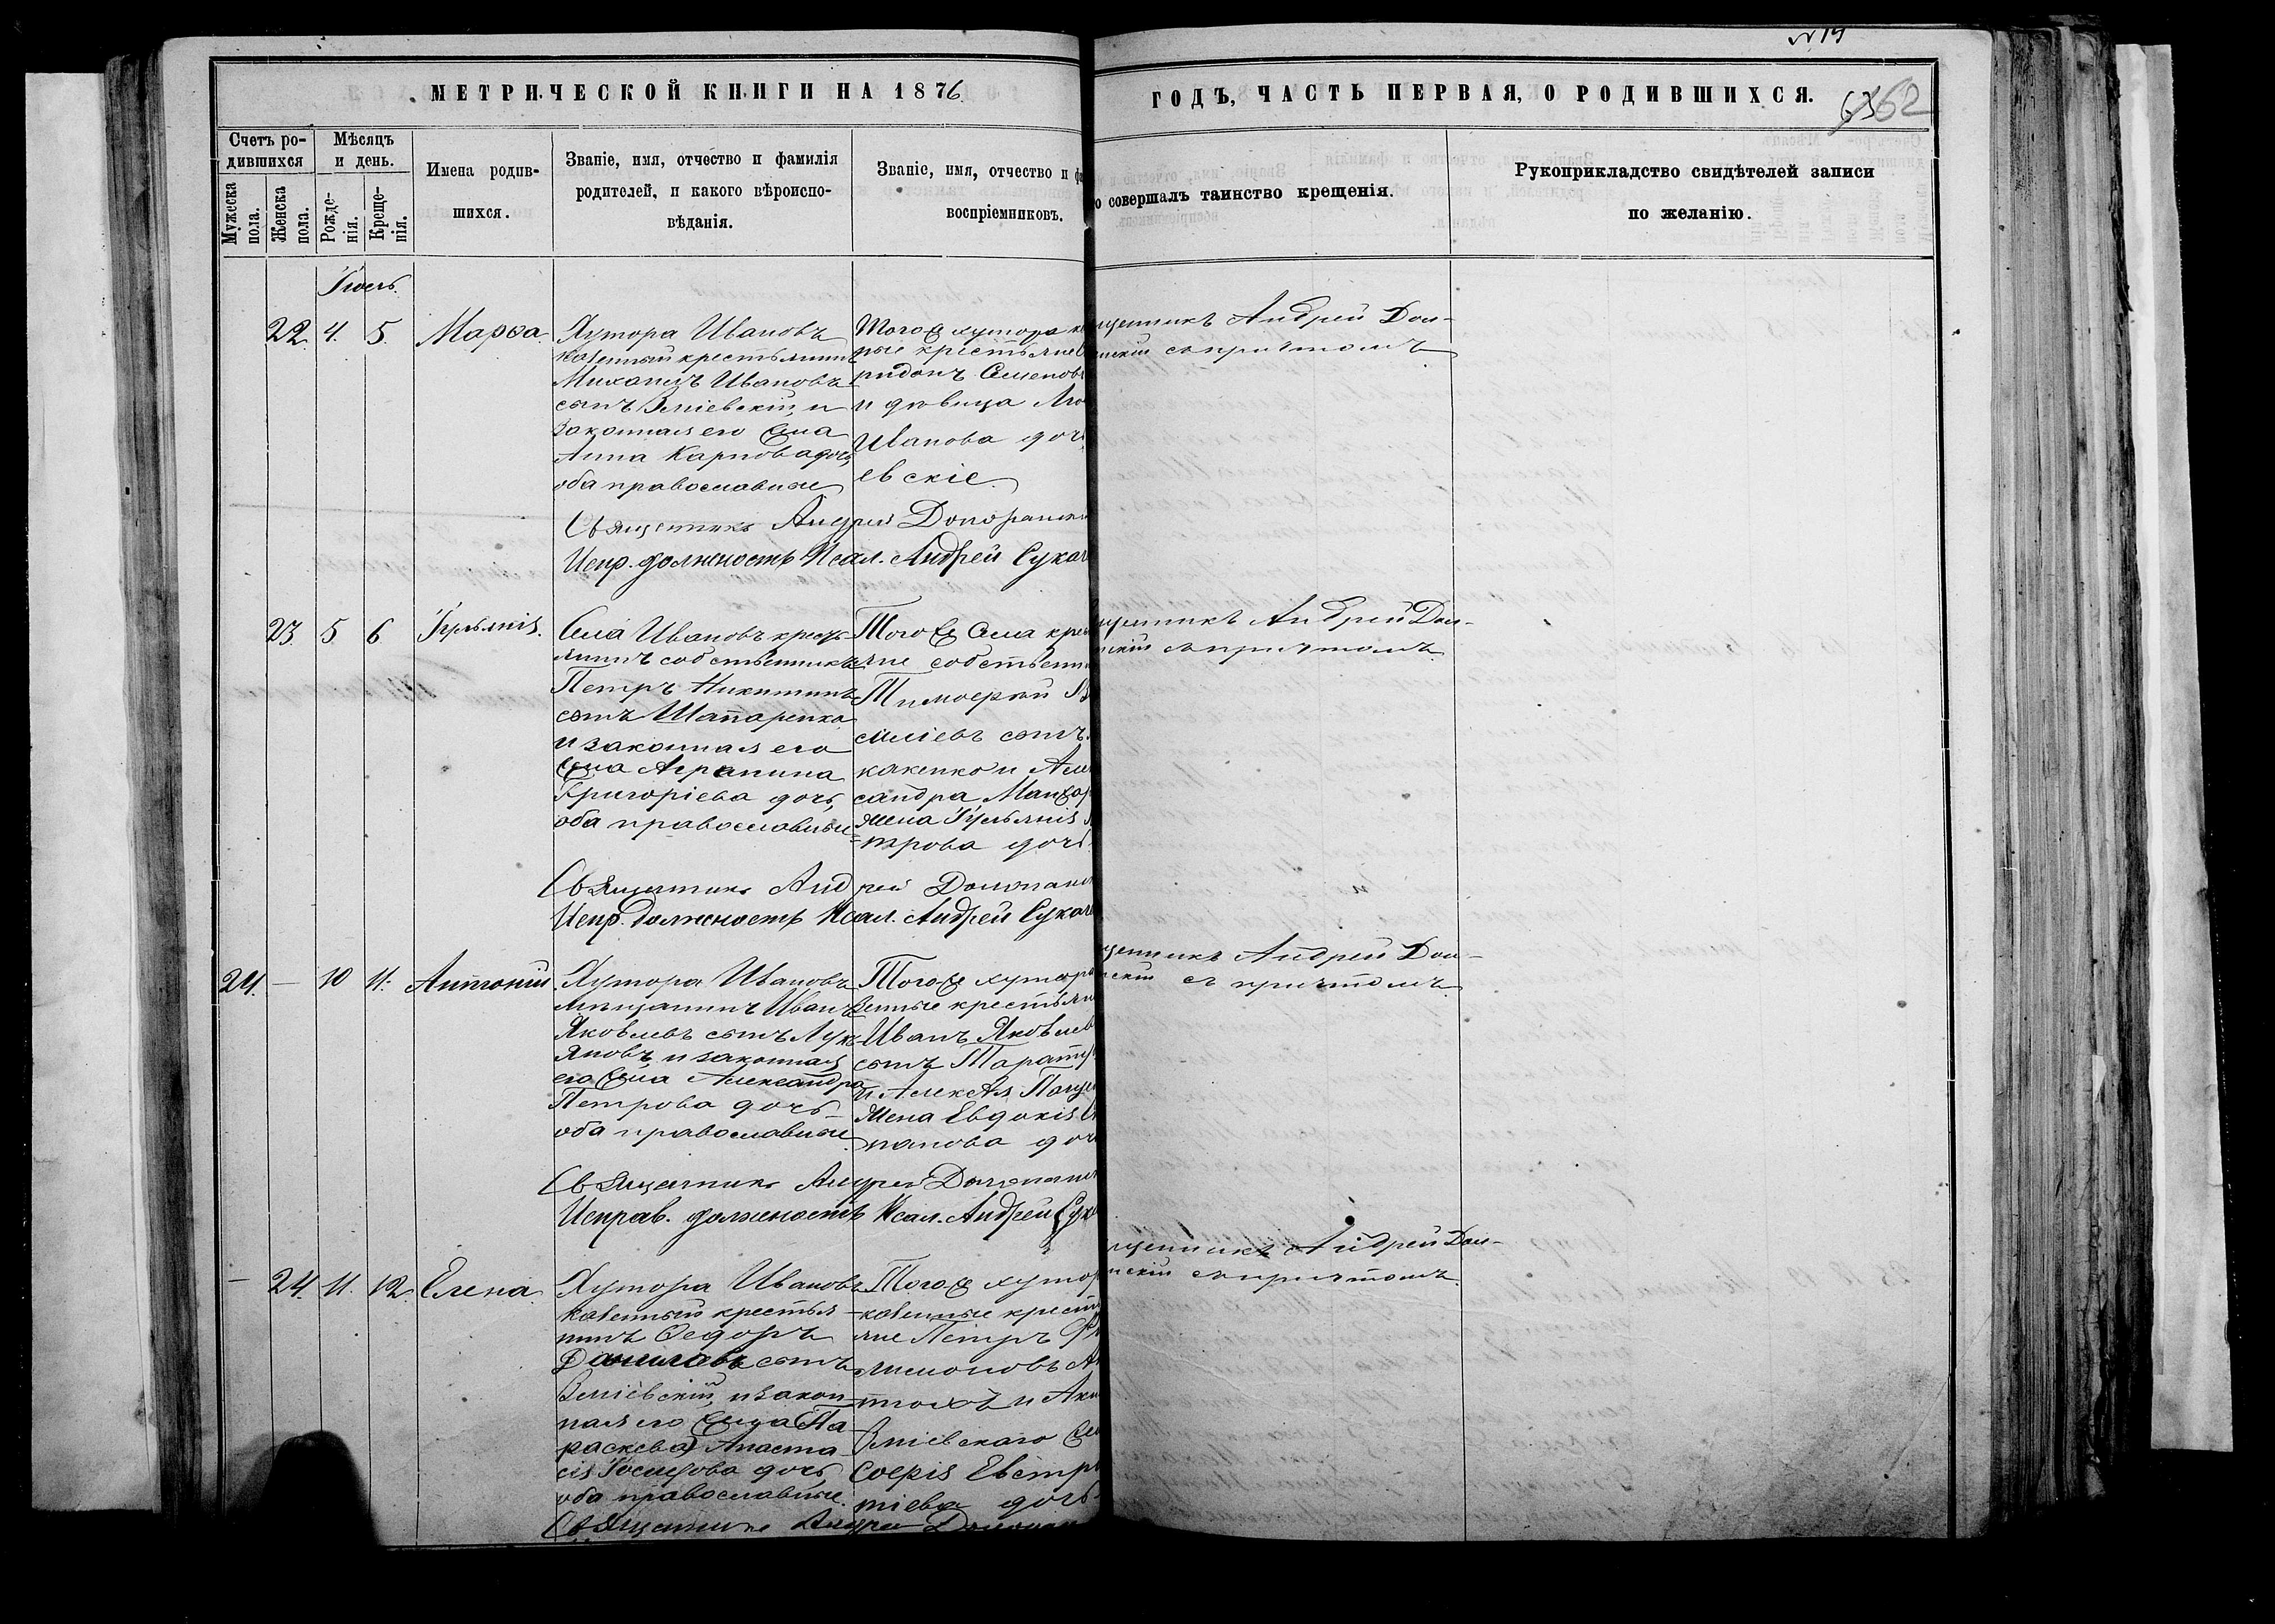 № 19
МЕТРИЧЕСКОЙ КНИГИ НА 1876
ГОДЪ, ЧАСТЬ ПЕРВАЯ, О РОДИВШИХСЯ.
62
Счетъ ро-
дившихся
Мужеска
пола.
Женска
пола.
Мѣсяцъ
и день.
Рожде-
нія.
Креще-
нія.
Имена родив-
шихся.
Званіе, имя, отчество и фамилія
родителей, и какого вѣроиспо-
вѣданія.
Званіе, имя, отчество и
воспріемниковъ.
совершалъ таинство крещенія.
Рукоприкладство свидѣтелей записи
по желанію.
22. 4. 5. Марѳа.
Хутора Ивановъ
казенный крестьянинъ
Михаилъ Ивановъ
сынъ Зміевскій, и
законная его жена
Анна Карпова дочь,
оба православные
Тогоже хутора
ные крестьяне
ридонъ Семеновъ
и дѣвица
Иванова доч
евскіе.
щенникъ Андрей Дол-
скій съ причтомъ
Священникъ Андрей
Испр. должность Псал. Андрей Сукач
23. 5 6 Іуліанія.
Села Ивановъ кресть-
янинъ собственникъ
Петръ Никитинъ
сынъ Шапаренко
и законная его
жена Агрипина
Григоріева дочь,
оба православные
Тогоже села кре
яне собственн
Тимоѳей
силіевъ сынъ
какенко и Алек
сандра
жена Іуліанія
трова дочь.
щенникъ Андрей Дол-
скій съ причтомъ.
Священникъ Андрей
Испр. должность Псал. Андрей Сукач
24. — 10 11. Антоній.
Хутора Ивановъ
мѣщанинъ Иванъ
Яковлевъ сынъ Лукь
яновъ, и законная
его жена Александра
Петрова дочь
оба православные
Тогоже хутора
зенные крестьян
Иванъ Яковлев
сынъ
и
жена Евдокія
панова доч
щенникъ Андрей Дол-
скій съ причтомъ
Священникъ Андрей
Исправ. должность Псал. Андрей Сук
— 24. 11. 12. Елена.
Хутора Ивановъ
казенный крестья-
нинъ Ѳедоръ
Даниловъ сынъ
Зміевскій, и закон-
ная его жена (Па-
раскева) Анаста-
сія Іосифова дочь,
оба православные.
Тогоже хутор
казенные кресть
яне Петръ Фи
лимоновъ
и
Зміевскаго же
Софія Евстра
тіева дочь
щенникъ Андрей Дол-
скій съ причтомъ.
Священникъ Андрей